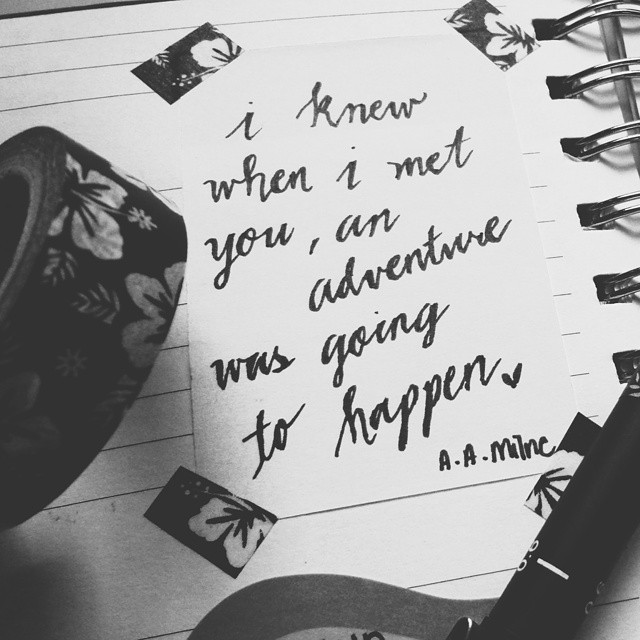 i knew
when i met
you, an
adventure
was going
to happen
A.A. Milne